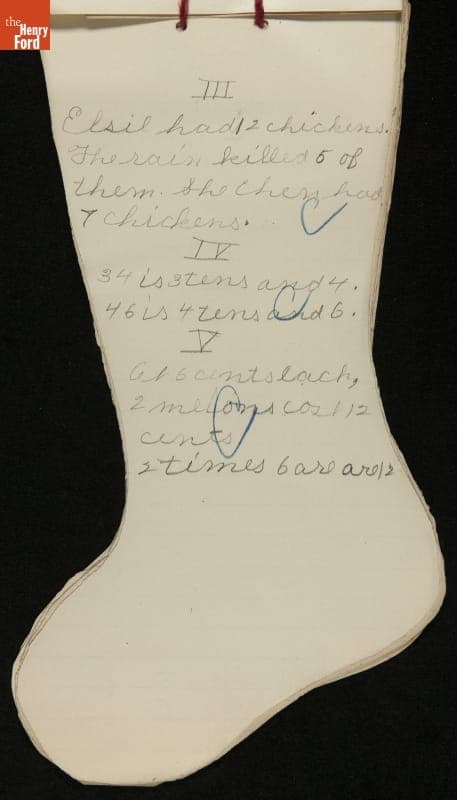 the
Henry
Ford
III
Elsie had 12 chickens.
The rain killed 5 of
them. She then had
7 chickens.
IV
34 is 3 tens and 4.
46 is 4 tens and 6.
V
At 6 cents each,
2 melons cost 12
cents
2 times 6 are are 12